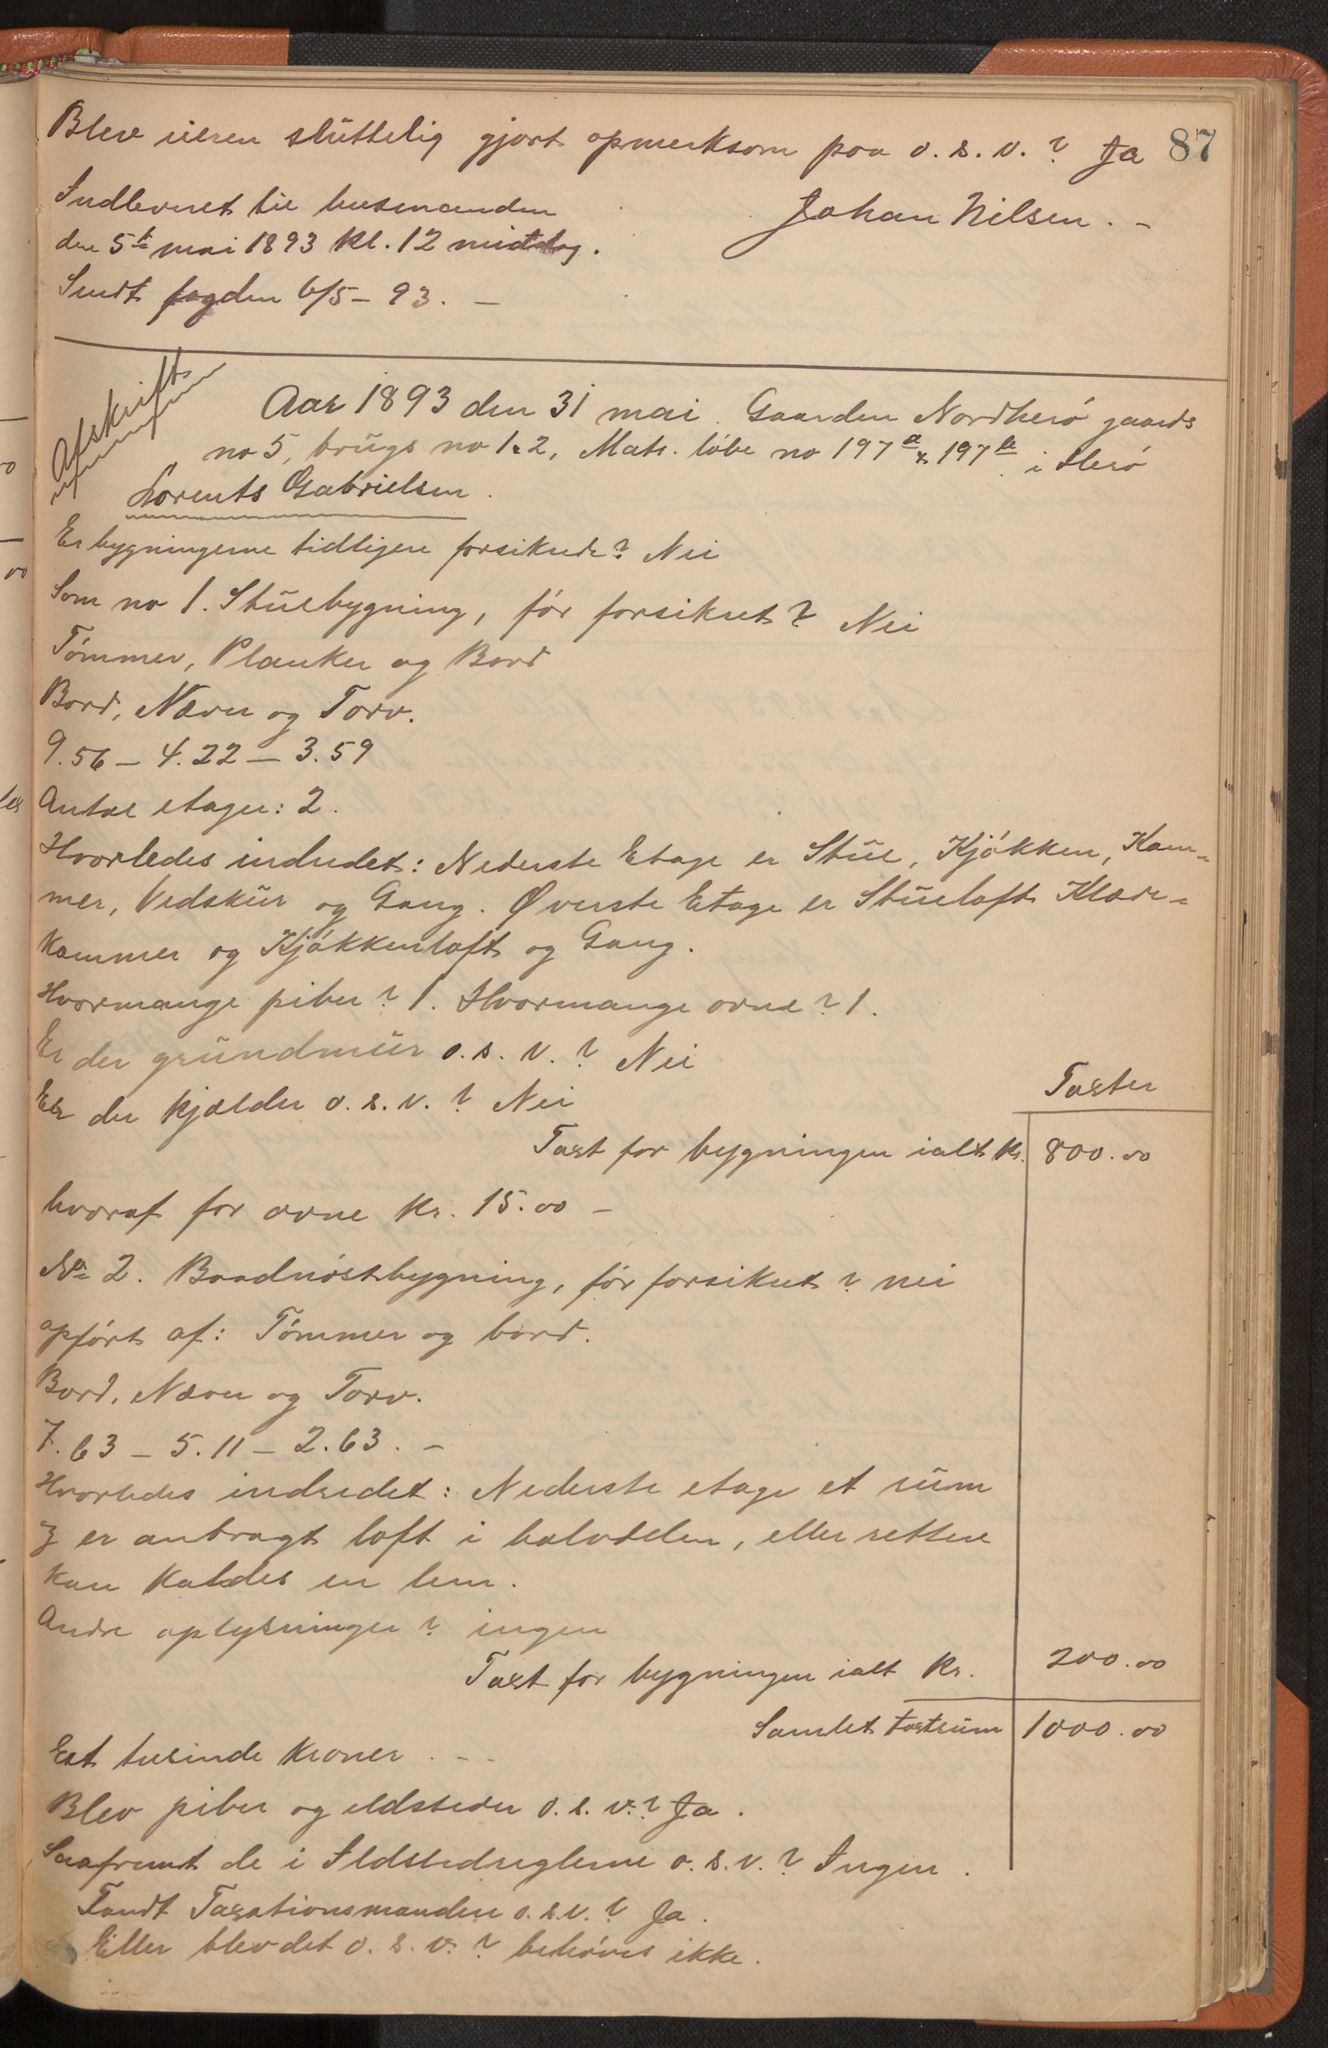 87
Blev eieren sluttelig gjort opmerksom paa o. s. v.? Ja
Johan Nilsen. –
Indleveret til lensmanden
den 5te mai 1893 kl. 12 middag.
Sendt fogden 6/5 – 93. –
Afskrift
Aar 1893 den 31 mai Gaarden Nordherö gaards
no 5, brugs no 1 & 2, Matr. löbe no 197a & 197b i Herö
Lorents Gabrielsen.
Er bygningerne tidligere forsikrede? Nei
Som no 1. Stuebygning, för forsikret? Nei
Tömmer, Planker og Bord
Bord, Næver og Torv.
9.56 – 4.22 – 3.59
Antal etager: 2.
Hvorledes indredet: Nederste Etage er Stue, Kjökken, Kam-
mer, Vedskur og Gang. Øverste Etage er Stueloft Klæde-
kammer og Kjökkenloft og Gang.
Hvormange piber? 1. Hvormange ovne? 1.
Er der grundmur o. s. v.? Nei
Er der kjælder o. s. v.? Nei
Taxter
Taxt for bygningen ialt kr. 800.00
hvoraf for ovne kr. 15.00 –
No 2. Baadnöstbygning, för forsikret? nei
opfört af: Tömmer og bord.
Bord, Næver og Torv.
7.63 – 5.11 – 2.63. –
Hvorledes indredet: Nederste etage et rum
og er anbragt loft i halvdelen, eller rettere
kan kaldes en lem.
Andre oplysninger? ingen
Taxt for bygningen ialt kr. 200.00
Samlet taxtsum 1000.00
Et tusinde kroner. – –
Blev piber og ildsteder o. s. v.? Ja.
Saafremt de i Ildstedreglerne o. s. v.? Ingen.
Fandt Taxationsmanden o. s. v.? Ja.
Eller blev det o. s. v.? behöves ikke.